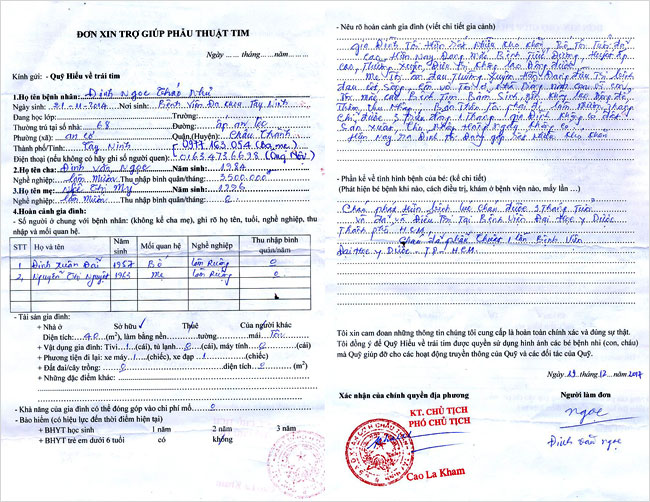 ĐƠN XIN TRỢ GIÚP PHẪU THUẬT TIM
Ngày ...... tháng ......năm.........
Kính gửi: - Quỹ Hiểu về trái tim
1.Họ tên bệnh nhân: Đinh Ngọc Thảo Như
Ngày sinh: 21-11-2014 Nơi sinh: Bệnh Viện Đa Khoa Tây Ninh
Đang học lớp: Trường:
Thường trú tại số nhà: 68 Đường: ấp an lộc
Phường (xã): an cơ Quận (Huyện): Châu Thành
Thành phố/Tỉnh: Tây Ninh
Điện thoại (nếu không có hãy ghi số người quen):
2.Họ tên cha: Đinh Văn Ngọc Năm sinh: 1984
Nghề nghiệp: làm Mướn Thu nhập bình quân/tháng: 3.500.000
3.Họ tên mẹ: Thị My Năm sinh: 1996
Nghề nghiệp: làm Mướn Thu nhập bình quân/tháng: 0
4.Hoàn cảnh gia đình:
- Số người ở chung với bệnh nhân: (không kể cha mẹ), ghi rõ họ tên, tuổi, nghề nghiệp, thu
nhập và mối quan hệ.
STT Họ và tên Năm sinh Mối quan hệ Nghề nghiệp Thu nhập bình quân/năm
1 Đinh Xuân 1957 Bố làm Ruộng 0
2 Nguyễn Thị Nguyệt 1963 Mẹ làm Ruộng 0
- Tài sản gia đình:
+ Nhà ở Sở hữu Thuê Của người khác
Diện tích: 40 (m²), làm bằng nền........tường......... mái
+ Vật dụng gia đình: Tivi 1 (cái), tủ lạnh 0 (cái), máy tính 0 (cái)
+ Phương tiện đi lại: xe máy 1 (chiếc), xe đạp 1 (chiếc)
+ Đất đai/cây trồng: 0 diện tích 0 (m²)
+ Những đặc điểm khác:
- Khả năng của gia đình có thể đóng góp vào chi phí mổ 0
- Bảo hiểm (có hiệu lực đến thời điểm hiện tại)
+ BHYT học sinh 1 năm 2 năm 3 năm
+ BHYT trẻ em dưới 6 tuổi có không
- Nêu rõ hoàn cảnh gia đình (viết chi tiết gia cảnh)
gia Đình Tôi Hiện Rất Nhiều Khó Khăn Bố Tôi Tuổi đã
cao Hiện Nay Đang Mắc Bệnh Tiểu Đường, Huyết áp
cao, Thường Xuyên Điều Trị không lao Động được
Mẹ Tôi ốm đau Thường Xuyên Hiện Đang điều Trị bệnh
Thêm Thu Nhập Bản Thân Tôi
Chỉ được 3 Triệu đồng 1 Tháng gia Đình không có đất
Sản Xuất
Hiện Nay gia Đình Tôi Đang gặp Rất Nhiều Khó khăn
- Phần kể về tình hình bệnh của bé: (kể chi tiết)
(Phát hiện bé bệnh khi nào, cách điều trị, khám ở bệnh viện nào, mấy lần ...)
Cháu phát Hiện bệnh lúc Cháu được 3 Tháng Tuổi
và điều Trị Tại Bệnh Viện Đại Học y Dược
Thành phố H.C.M
Cháu đã phẫu Thuật 1 lần Bệnh Viện
Đại Học y Dược T.P H.C.M
Tôi xin cam đoan những thông tin chúng tôi cung cấp là hoàn toàn chính xác và đúng sự thật.
Tôi đồng ý để Quỹ Hiểu về trái tim được quyền sử dụng hình ảnh các bé bệnh nhi (con, cháu)
mà Quỹ giúp đỡ cho các hoạt động truyền thông của Quỹ và các đối tác của Quỹ.
Ngày 29 tháng 12 năm 2017
Xác nhận của chính quyền địa phương Người làm đơn
KT. CHỦ TỊCH
PHÓ CHỦ TỊCH
Ngọc
Đinh Văn Ngọc
Cao La Kham